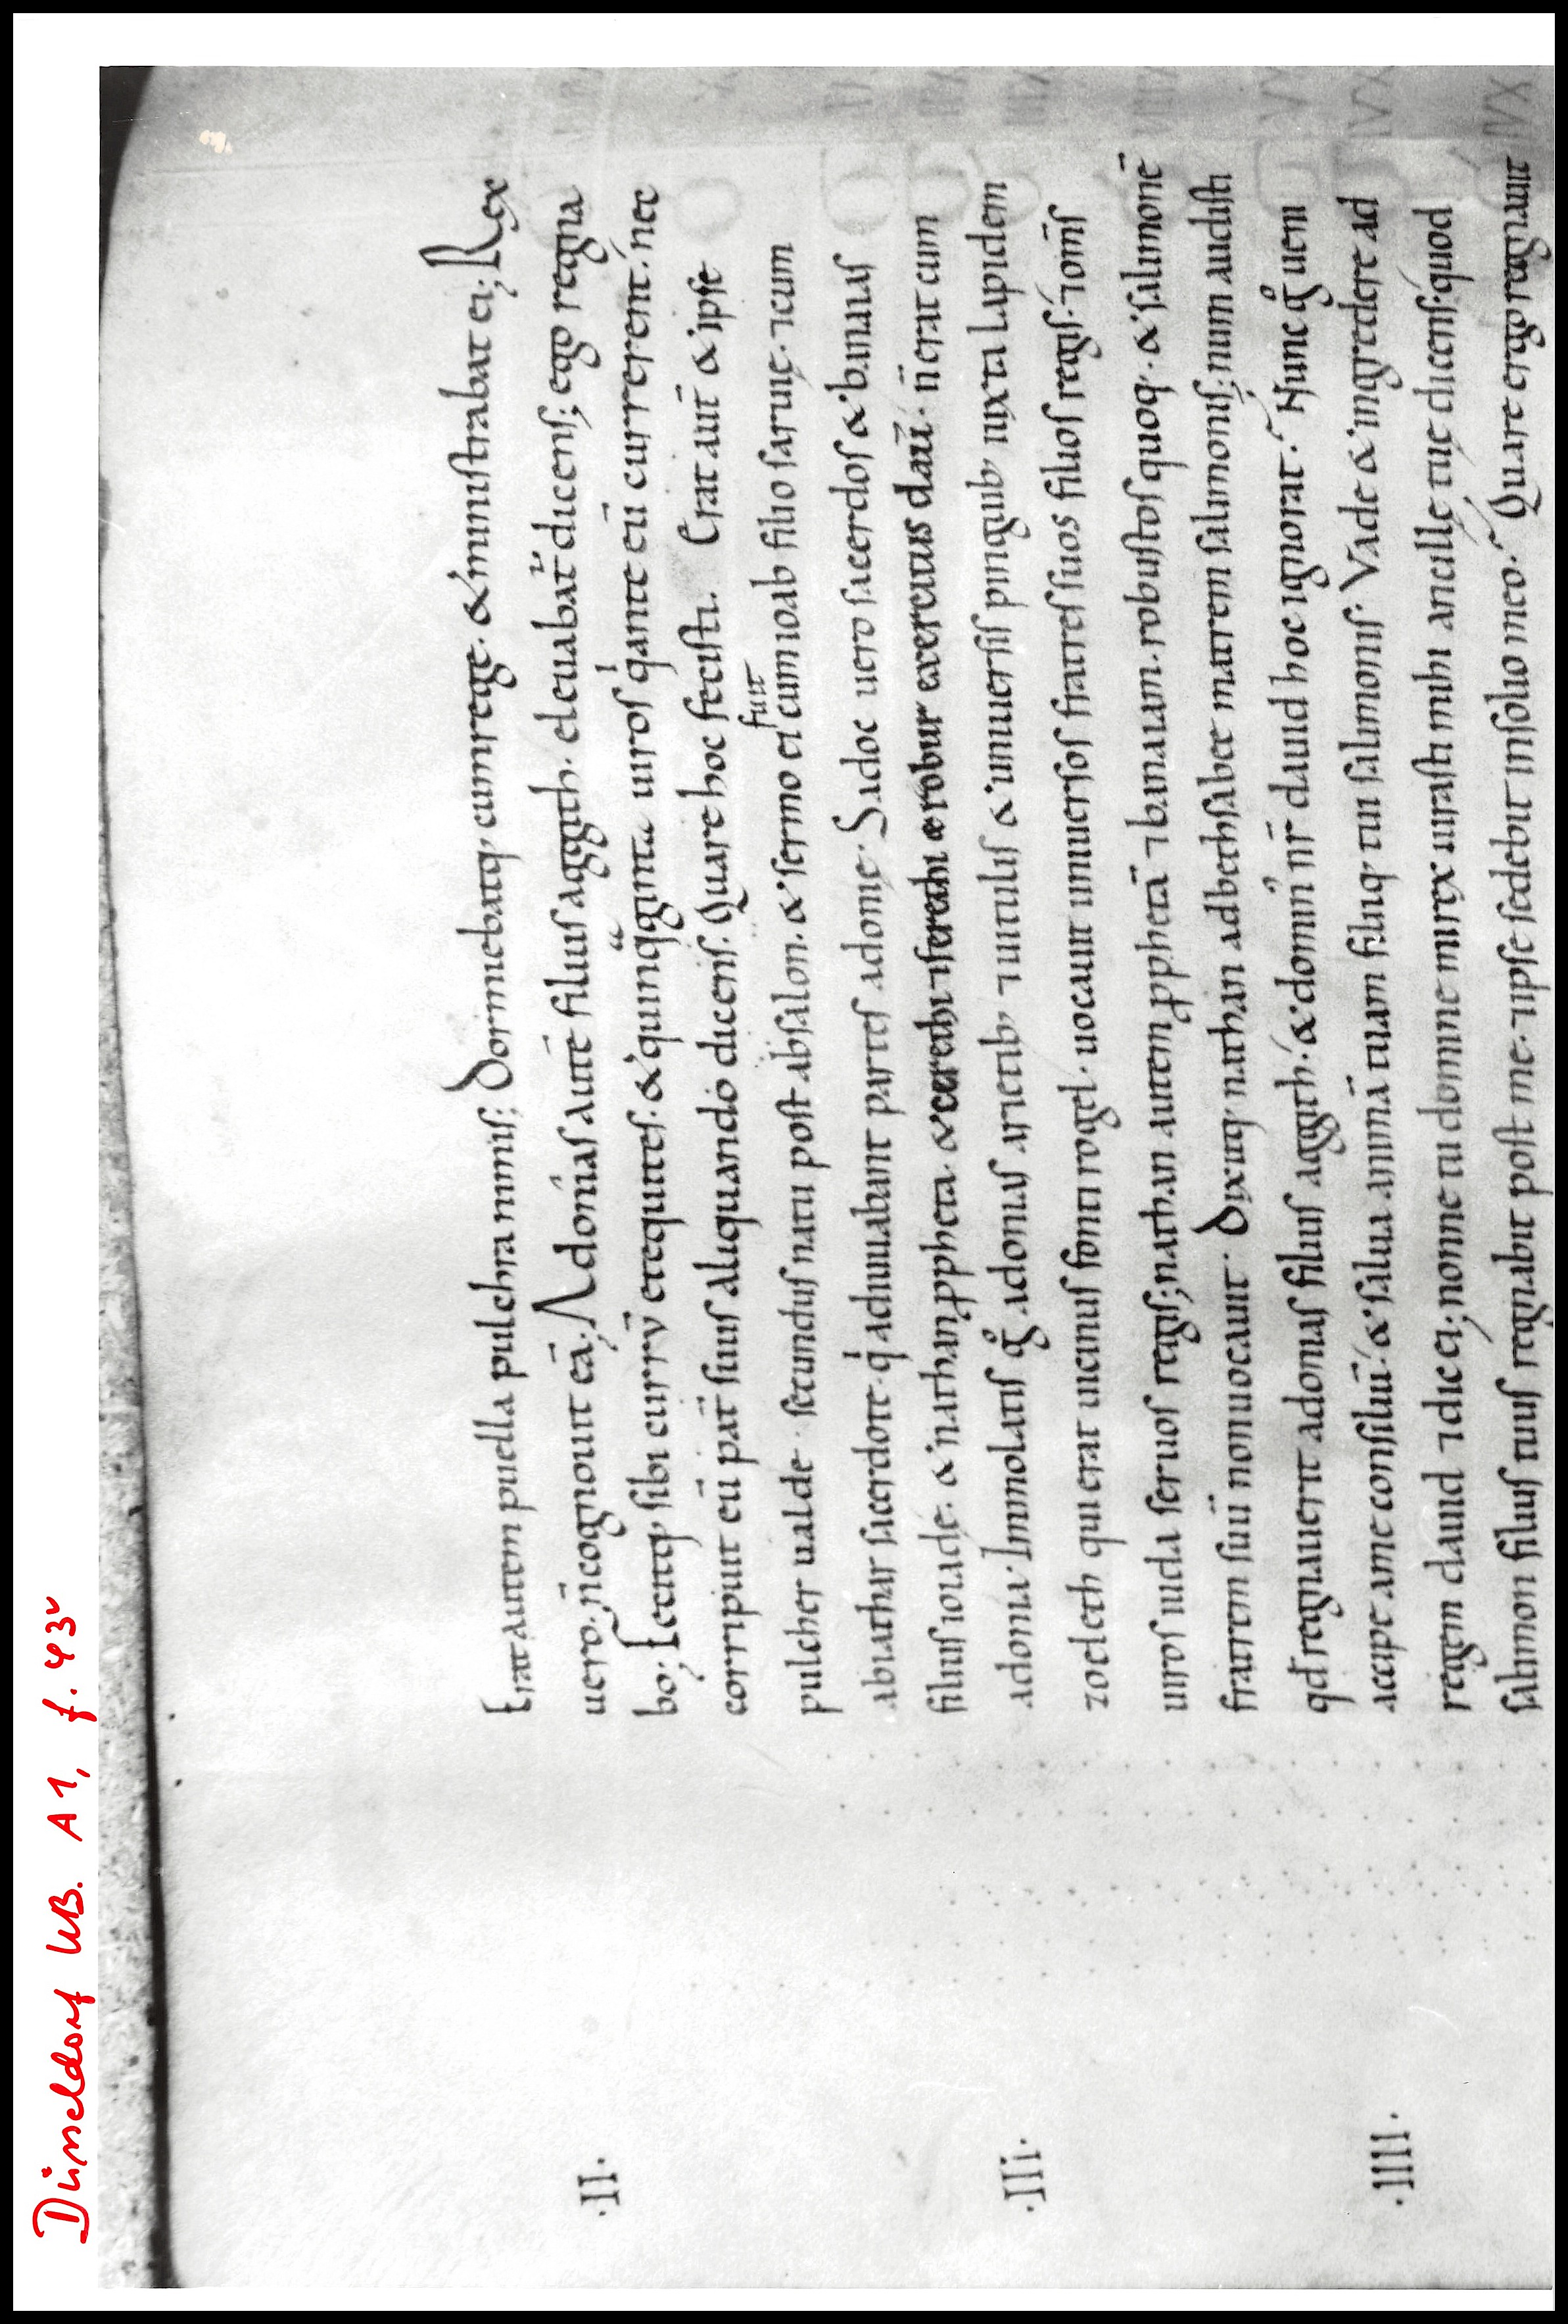 Düsseldorf UB. A 1, f. 43v
Erat autem puella pulchra nimis; Dormiebatq; cum rege. & ministrabat ei; Rex
.II. uero n̄ cognouit eā; Adonias autē filius aggith. eleuabat̄ dicens; ego regna
bo; Fecitq; sibi currū et equites. & quinq̇ginta uiros q̇ ante eū currerent. nec
corripuit eū pat̄ suus aliquando dicens. Quare hoc fecisti. Erat aut̄ & ipse
fuit
pulcher ualde. secundus natu post absalon. & sermo ei cum ioab filio saruię. ⁊cum
abiathar sacerdote. q̇ adiuuabant partes adonię. Sadoc uero sacerdos & banaias
filius ioiadę. & nathan ꝓpheta. & cerethi ⁊ferethi & robur exercitus dauī. n̄ erat cum
.IIi. adonia. Immolatis g̊ adonias arietib; ⁊uitulis & uniuersis pinguib; iuxta lapidem
zoeleth qui erat uicinus fonti rogel. uocauit uniuersos fratres suos filios regis. ⁊om̄s
uiros iuda seruos regis; nathan autem ꝓphetā ⁊banaiam. robustos quoq;. & salmonē
fratrem suū non uocauit. Dixitq; nathan ad bethsabee matrem salmonis; num audisti
qd̄ regnauerit adonias filius aggith. & domin' nr̄ dauid hoc ignorat. Nunc g̊ ueni
.IIII. accipe a me consiliū. & salua animā tuam filiiq; tui salmonis. Vade & ingredere ad
regem dauid ⁊dic ei; nonne tu domine mi rex iurasti mihi ancillę tuę dicens. quod
salmon filius tuus regnabit post me. ⁊ipse sedebit in solio meo. Quare ergo regnauit